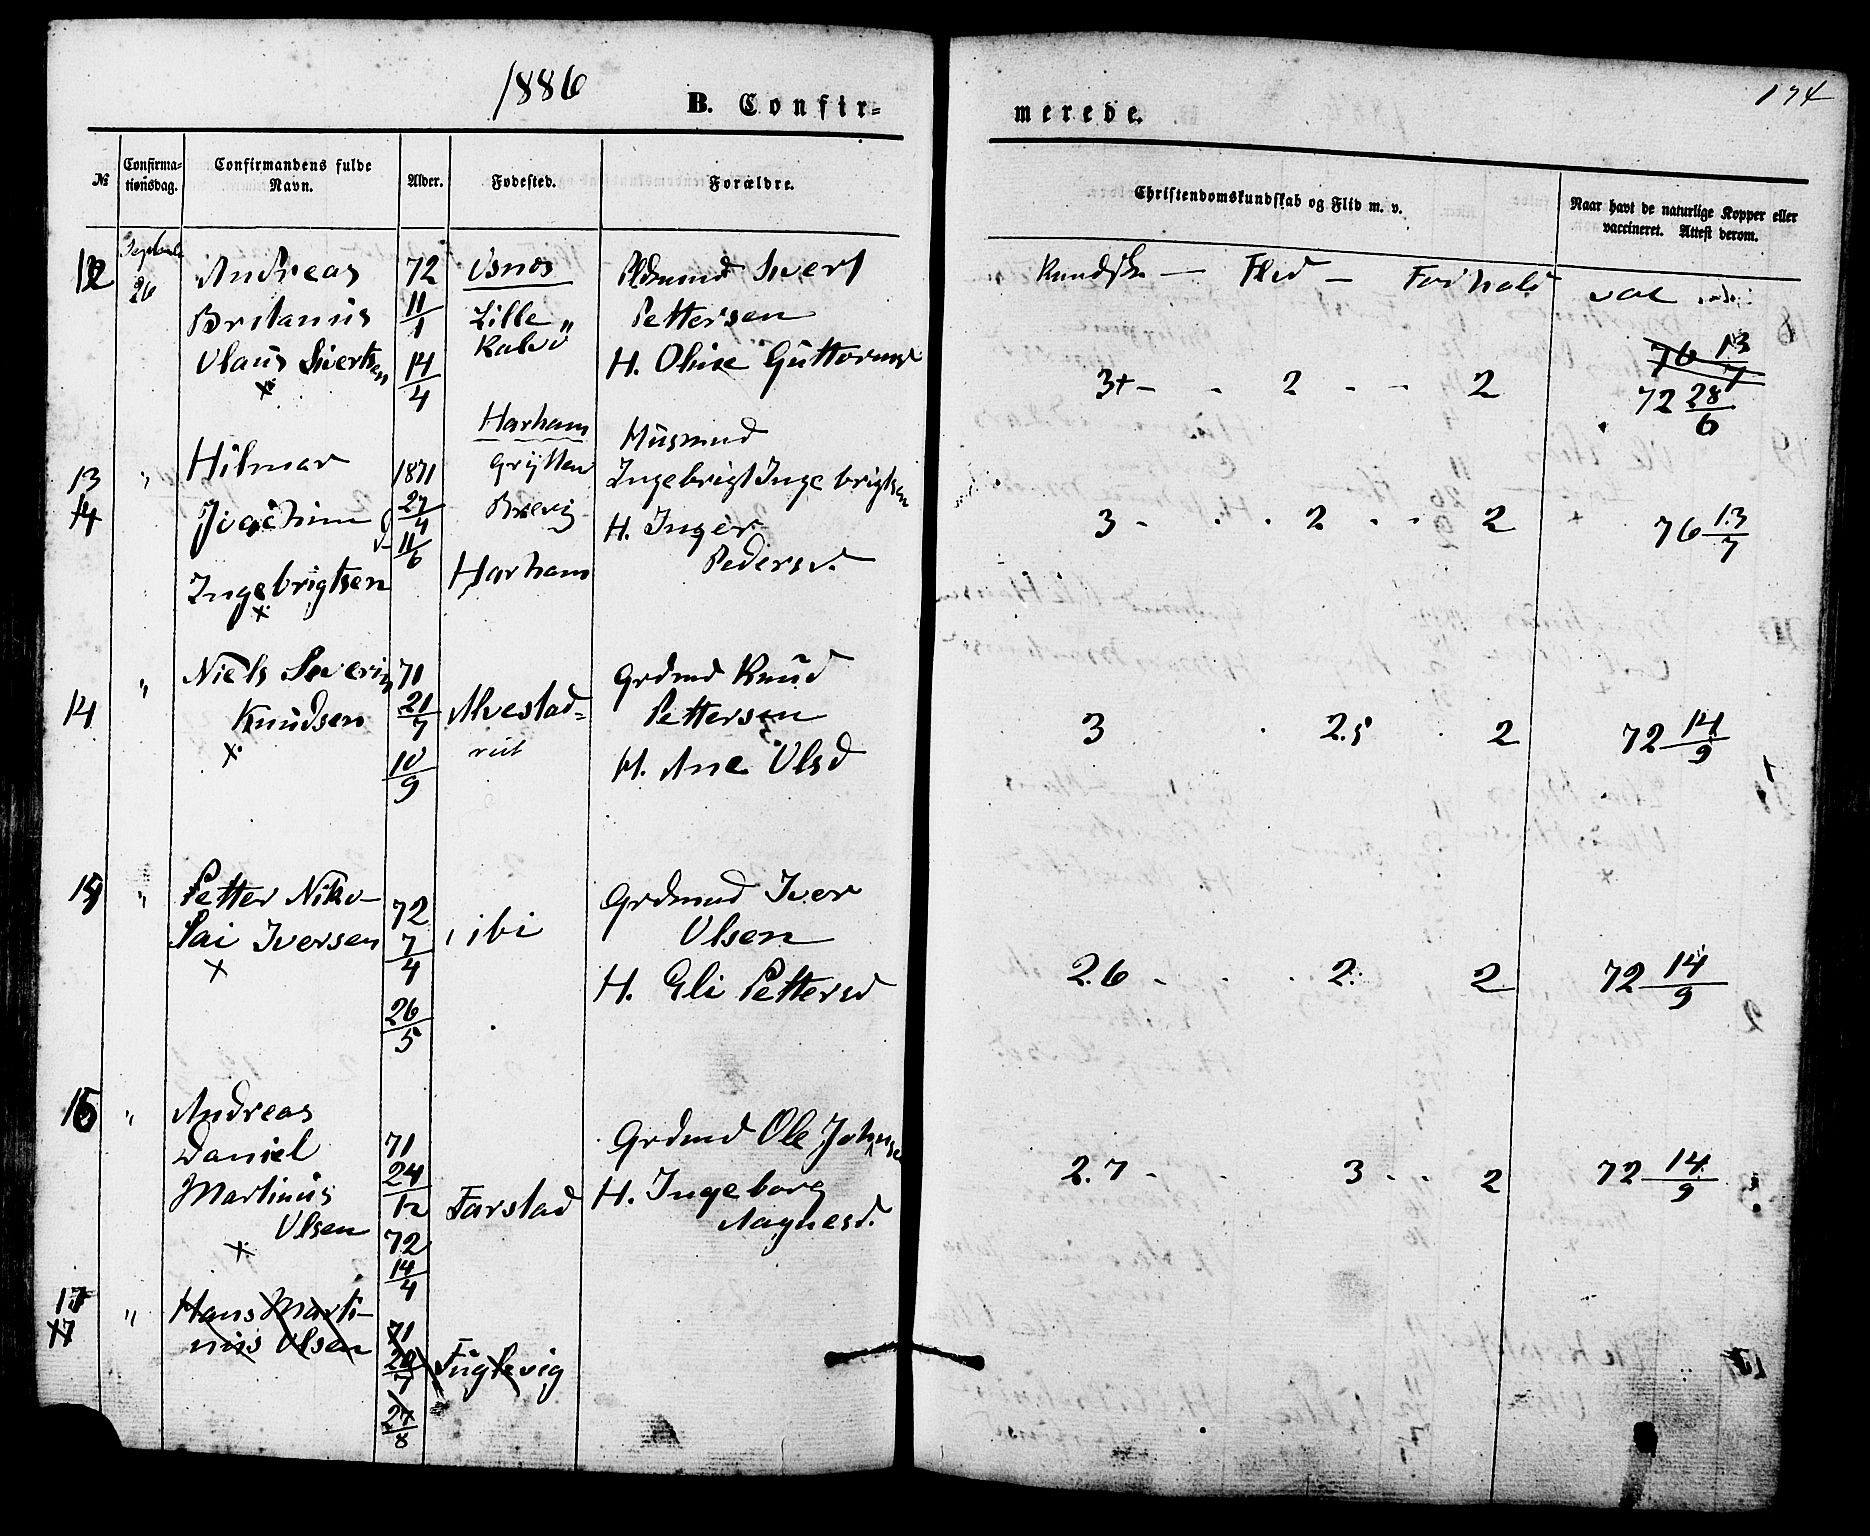 1886
B. Confir-
merede.
174
№
Confirma-
tionsdag.
Confirmandens fulde
Navn.
Alder.
Fødested.
Forældre.
Christendomskundskab og Flid m. v.
Naar havt de naturlige Kopper eller
vaccineret. Attest derom.
Kundsk. — Flid — Forhold
vac
12
26
Andreas
Britanius
Olaus Sivertsen
x
72
11/1
14/4
Lille
Kalvø
Sivert
Pettersen
H. Oline Guttormsd
3+ - - 2 - - 2
76 13/7
72 28/6
13
14
"
Hilmar
Joachim
Ingebrigtsen
x
1871
27/4
11/6
Harham
Grytten
Brevig
Harham
Husmnd
Ingebrigt Ingebrigtsen
H. Inger
Pedersd.
3 - . . 2 . . 2
76 13/7
14
"
Niels Severin
Knudsen
x
71
21/7
10/9
Alvestad-
rut
Grdmd Knud
Pettersen
H. Ane Olsd
3 . 2.5 . 2
72 14/9
15
"
Petter Niko-
lai Iversen
x
72
7/4
26/5
ibi
Grdmnd Iver
Olsen
H. Eli Pettersd
2.6 - . . 2. 2
72 14/9
16
"
Andreas
Daniel
Martinus
Olsen
x
71
24/12
72
14/4
Farstad
Grdmd Ole Johnsen
H. Ingeborg
Aagnesd.
2.7 - . 3 - . 2
72 14/9
17
17
"
Hans Marti-
nus Olsen
71
20/7
27/8
Fuglevig